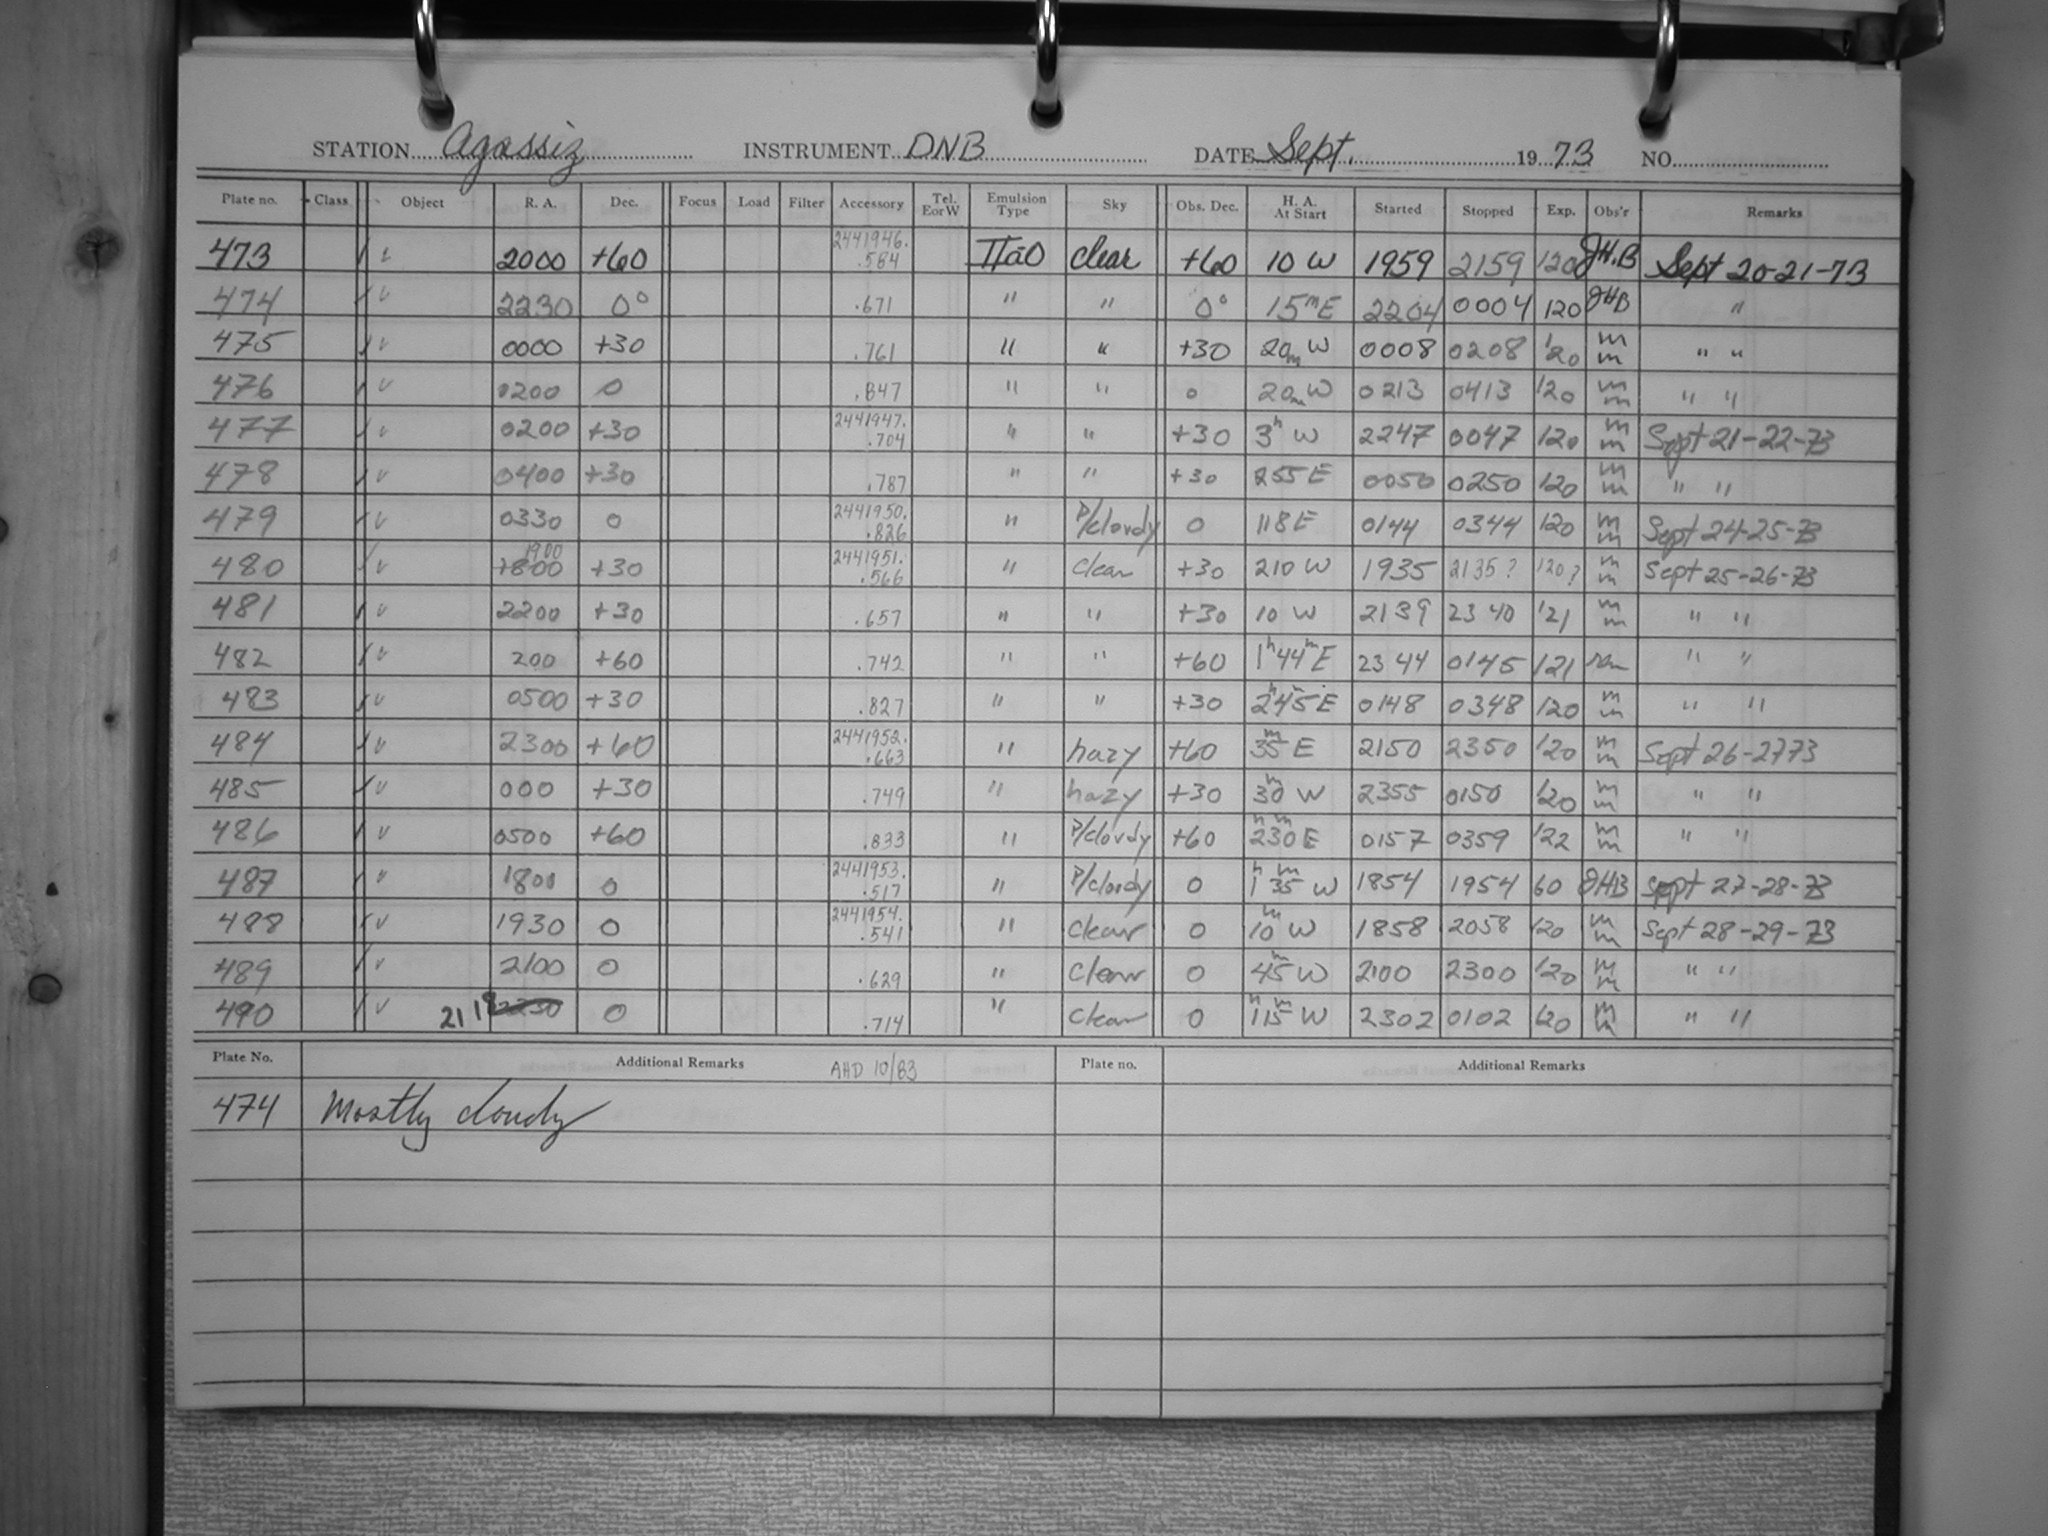 STATION Agassiz INSTRUMENT DNB DATE Sept. 1973 NO.
Plate no. Class Object R. A. Dec. Focus Load Filter Accessory Tel. E or W Emulsion Type Sky Obs. Dec. H. A. At Start Started Stopped Exp. Obs'r Remarks
473 2000 +60 2441946. .584 IIaO clear +60 10 W 1959 2159 120 JH.B Sept 20-21-73
474 2230 0° .671 " " 0° 15m E 2204 0004 120 JHB "
475 0000 +30 .761 " " +30 20m W 0008 0208 120 " "
476 0200 0 .847 " " 0 20m W 0213 0413 120 " "
477 0200 +30 2441947. .704 " " +30 3h W 2247 0047 120 Sept 21-22-73
478 0400 +30 .787 " " +30 255 E 0050 0250 120 " "
479 0330 0 2441950. .826 " P/cloudy 0 118 E 0144 0344 120 Sept 24-25-73
480 1900 1800 +30 2441951. .566 " clear +30 210 W 1935 2135? 120? Sept 25-26-73
481 2200 +30 .657 " " +30 10 W 2139 2340 121 " "
482 200 +60 .742 " " +60 1h 44m E 2344 0145 121 " "
483 0500 +30 .827 " " +30 2h 45 E 0148 0348 120 " "
484 2300 +60 2441952. .663 " hazy +60 35m E 2150 2350 120 Sept 26-2773
485 000 +30 .749 " hazy +30 30m W 2355 0150 120 " "
486 0500 +60 .833 " P/cloudy +60 2h 30m E 0157 0359 122 " "
487 1800 0 2441953. .517 " P/cloudy 0 1h 35m W 1854 1954 60 JHB Sept 27-28-73
488 1930 0 2441954. .541 " clear 0 10m W 1858 2058 120 Sept 28-29-73
489 2100 0 .629 " clear 0 45m W 2100 2300 120 " "
490 2118 2230 0 .714 " clear 0 1h 15m W 2302 0102 120 " "
Plate No. Additional Remarks AHD 10/83 Plate no. Additional Remarks
474 Mostly cloudy